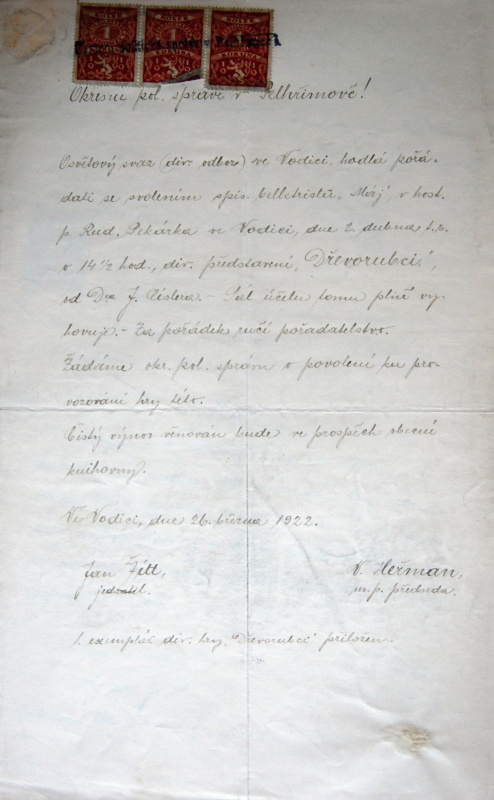 KOLEK KOLEK KOLEK
1 1 1
KORUNA KORUNA KORUNA
Okresní pol. správě v Pelhřimově!
Osvětový svaz (div. odbor) ve Vodici, hodlá pořá-
dati se svolením spis. belletristů „Máj" v host.
p. Rud. Pekárka ve Vodici, dne 2. dubna t.r.
o 14 ½ hod., div. představení, „Dřevorubci",
od Dra J. - Sál účelu tomu plně vy-
hovuje. - Za pořádek ručí pořadatelstvo.
Žádáme okr. pol. správu o povolení ku pro-
vozování hry této.
Čistý výnos věnován bude ve prospěch obecní
knihovny.
Ve Vodici, dne 26. března 1922.
Jan Jítt, V. Heřman,
jednatel. m.p. předseda.
1 exemplář div. hry „Dřevorubci" přiložen.